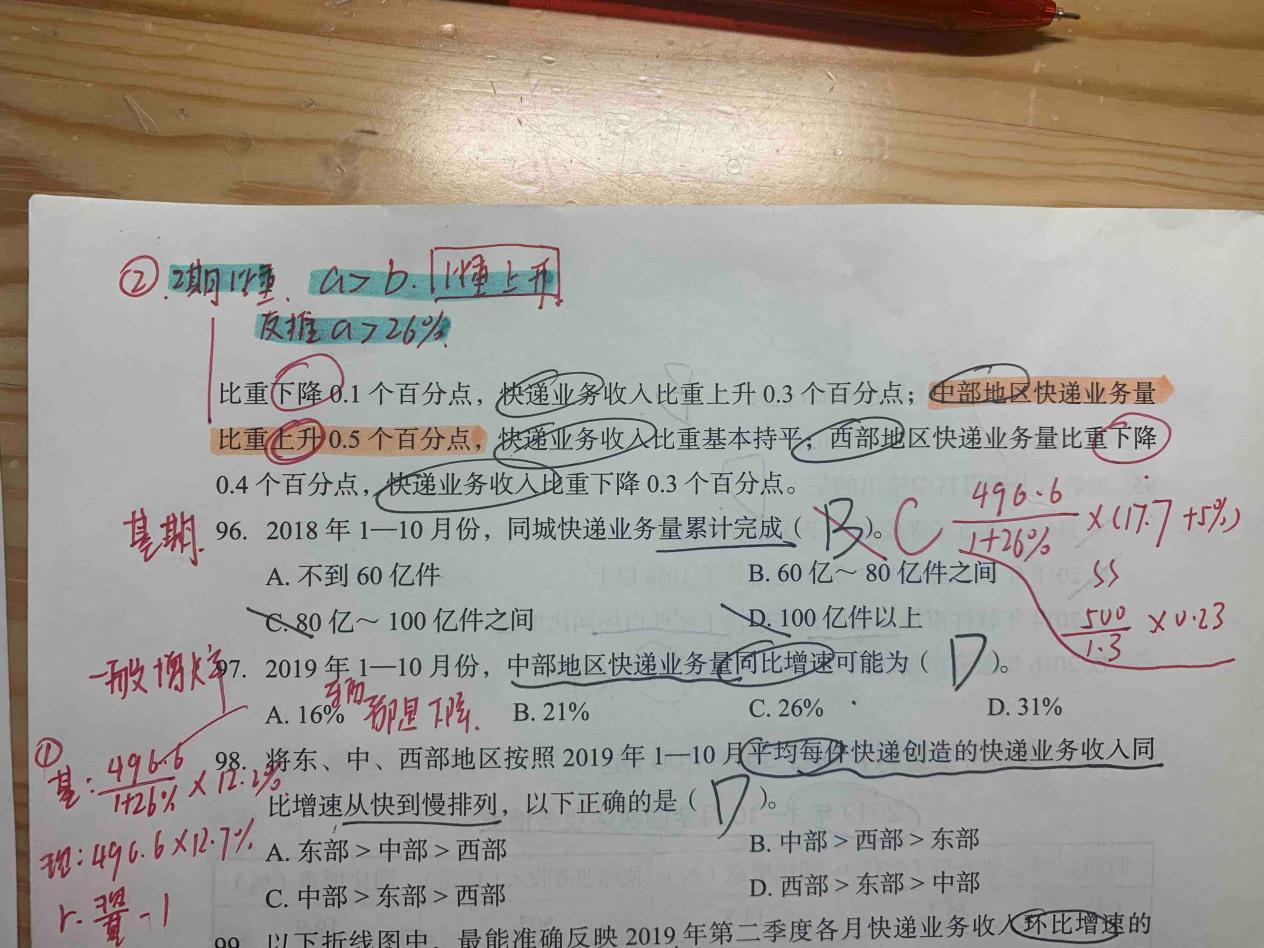 ② 2期比重. a>b. 比重上升
反推 a>26%
比重下降 0.1 个百分点，快递业务收入比重上升 0.3 个百分点；中部地区快递业务量
比重上升 0.5 个百分点，快递业务收入比重基本持平；西部地区快递业务量比重下降
0.4 个百分点，快递业务收入比重下降 0.3 个百分点。
基期. 96. 2018 年 1—10 月份，同城快递业务量累计完成（ B ）。 C 496.6/1+26% ×(17.7+5%)
A. 不到 60 亿件 B. 60 亿～ 80 亿件之间
C. 80 亿～ 100 亿件之间 D. 100 亿件以上 500/1.3 ×0.23
一般增长率 97. 2019 年 1—10 月份，中部地区快递业务量同比增速可能为（ D ）。
A. 16% B. 21% C. 26% D. 31%
都是下降.
① 基: 496.6/1+26% ×12.2% 98. 将东、中、西部地区按照 2019 年 1—10 月平均每件快递创造的快递业务收入同
比增速从快到慢排列，以下正确的是（ D ）。
现: 496.6×12.7% A. 东部 > 中部 > 西部 B. 中部 > 西部 > 东部
r. 现/基 -1 C. 中部 > 东部 > 西部 D. 西部 > 东部 > 中部
99. 以下折线图中，最能准确反映 2019 年第二季度各月快递业务收入环比增速的